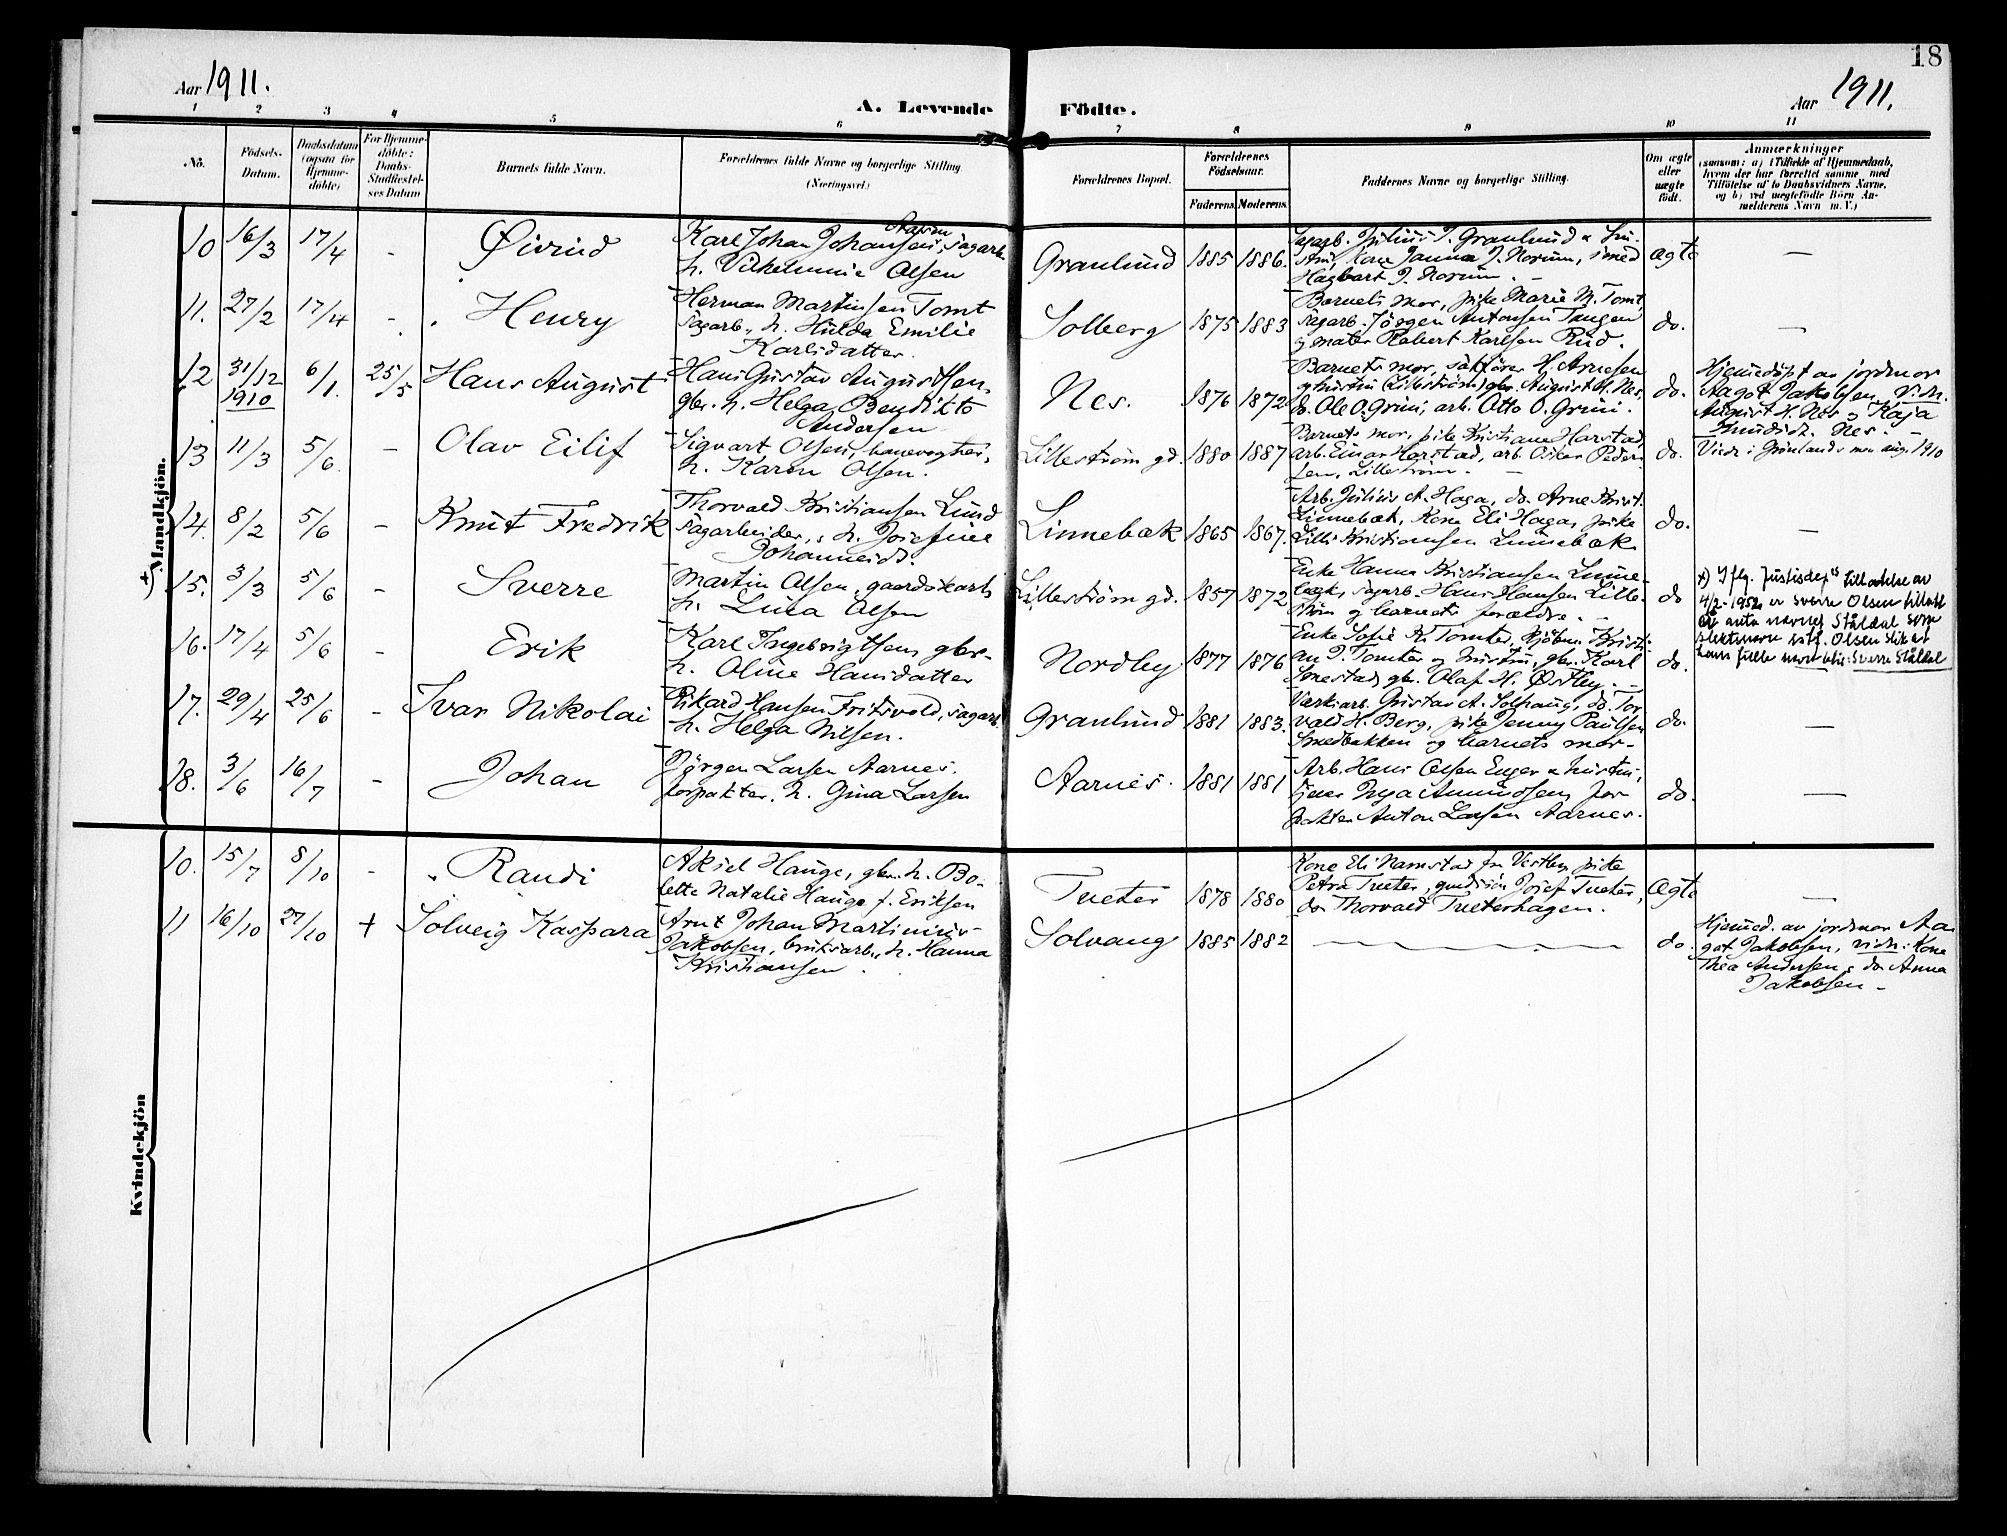 18
Aar 1911.
A. Levende Födte.
Aar 1911.
1 2 3 4 5 6 7 8 9 10 11
No.
Födsels-
Datum.
Daabsdatum
(ogsaa for
Hjemme-
döbte)
For Hjemme-
döbte:
Daabs-
Stadfæstel-
ses Datum
Barnets fulde Navn.
Forældrenes fulde Navne og borgerlige Stilling
(Næringsvei.)
Forældrenes Bopæl.
Forældrenes
Födselsaar.
Faderens. Moderens.
Faddernes Navne og borgerlige Stilling.
Om ægte
eller
uægte
födt.
Anmærkninger
(saasom: a) i Tilfælde af Hjemmedaab,
hvem der har forrettet samme, med
Tilföielse af to Daabsvidners Navne,
og b) ved uægtefödte Börn An-
melderens Navn m. V.)
Mandkjön.
10 16/3 17/4 - Øivind
Karl Johan Johansen, sagarb.
h. Vilhelmine Olsen
Granlund 1885 1886.
Sagarb. Julius J. Granlund &
Kone Janna J. Norum, smed
Hagbart J. Norum. -
ægte —
11. 27/2 17/4 - Henry
Herman Martinsen Tomt
sagarb., h. Hulda Emilie
Karlsdatter.
Solberg 1875 1883
Barnets mor, pike Marie M. Tomt,
sagarb. Jörgen Antonsen Tangen
og mater Robert Karlsen Rud.
do. —
12 31/12 1910 6/1. 25/5 Hans August
Hans Gustav Augustsen
gbr. h. Helga Bendikte
Andersen
Nes. 1876 1872
Barnets mor, H. Arnesen
og hustru (Lilleström) gbr. August H. Nes,
do. Ole O. Grini, arb. Otto O. Grini.
do.
Hjemedöpt av jordmor
Aagot Jakobsen, Vidn.
August H. Nes og Kaja
Nes. -
13 11/3 5/6. - Olav Eilif
Sigvart Olsen, banevogter,
h. Karen Olsen.
Lilleström gd. 1880 1887
Barnets mor, pike Kristiane Harstad,
arb. Einar Harstad, arb. Oskar Peder-
sen, Lilleström. -
do.
Viede i Grönland aug. 1910
14. 8/2 5/6 - Knut Fredrik
Thorvald Kristiansen Lund
sagarbeider, h. Josefine
Johannesd.
Linnebæk 1865 1867.
Arb. Julius A. Haga, do. Arne Krist.
Linnebæk, Kone Eli Haga, pike
Lilli Kristiansen Linnebæk
do. —
+) 15. 3/3 5/6 - Sverre
Martin Olsen, gaardskarl
h. Lina Olsen
Lilleström gd. 1857 1872
Enke Hanna Kristiansen Linne-
bæk, sagarb. Hans Hansen Lille-
ström og barnets forældre. -
do
x) Iflg. Justisdep's tilladelse av
4/2-1952 er Sverre Olsen tillatt
å anta navnet Ståldal som
slektsnavn istf. Olsen slik at
hans fulle navn blir: Sverre Ståldal
16. 17/4 5/6 - Erik
Karl Ingebrigtsen, gbr.
h. Oline Hansdatter
Nordby 1877 1876
Enke Sofie K. Tomter, Kjöbm. Kristi-
an J. Tomter og hustru, gbr. Karl
Smestad, gbr. Olaf H. Østby. -
do. —
17. 29/4 25/6 - Ivar Nikolai
Rikard Hansen Fritsvold, sagarb.
h. Helga Nilsen.
Granlund 1881 1883.
Verksarb. Gustav A. Solhaug, do. Tor-
vald H. Berg, pike Jenny Paulsen
Smedbakken og barnets mor-
do. —
18. 3/6 16/7 - Johan
Jörgen Larsen Aarnes,
forpakter, h. Gina Larsen
Aarnes. 1881 1881
Arb. Hans Olsen Enger & hustru,
Inga Amundsen, for-
pakter Anton Larsen Aarnes.
do. —
Kvindekjön
10. 15/7 8/10 - Randi
Aksel Hauge, gbr. h. Bo-
lette Natalie Hauge f. Eriksen
Tueter 1878 1880
Kone Eli Namstad fra Vestby, pike
Petra Tueter, Josef Tueter,
do Thorvald Tueterhagen.
ægte —
11 16/10 27/10 + Solveig Kaspara
Arnt Johan Martinius
Jakobsen, bruksarb., h. Hanna
Kristiansen.
Solvang 1885 1882
do.
Hjemmed. av jordmor Aa-
got Jakobsen, vidn: Kone
Thea Andersen, do Anna
Jakobsen -